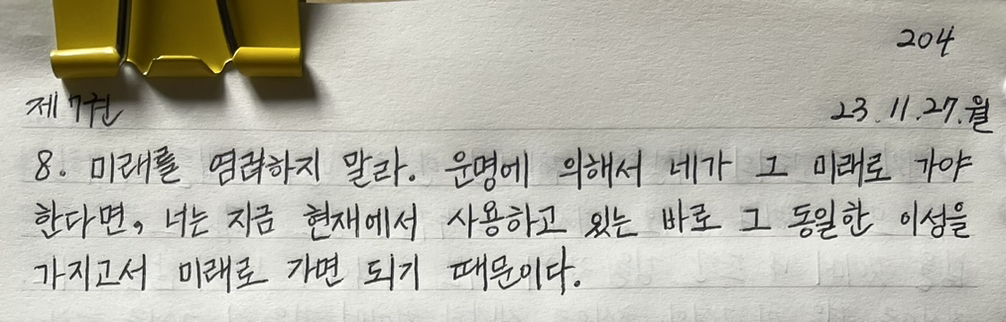 204
제 7권 23. 11. 27. 월
8. 미래를 염려하지 말라. 운명에 의해서 네가 그 미래로 가야
한다면, 너는 지금 현재에서 사용하고 있는 바로 그 동일한 이성을
가지고서 미래로 가면 되기 때문이다.